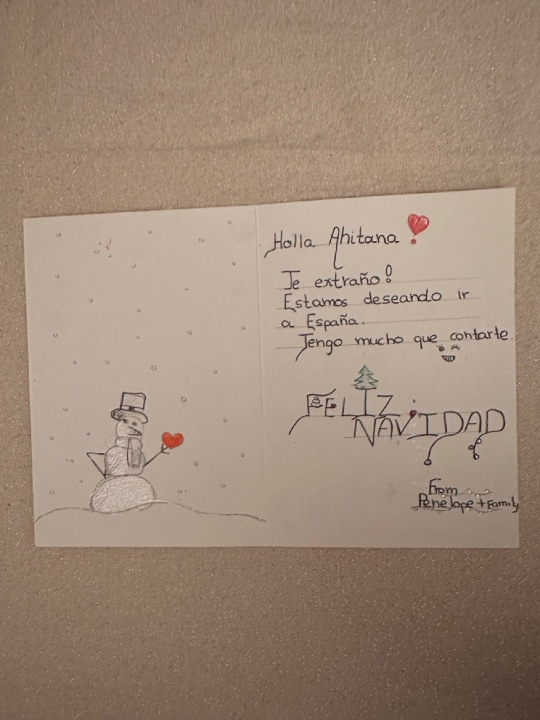 Holla Ahitana
Te extraño!
Estamos deseando ir
a España.
Tengo mucho que contarte.
FELIZ
NAVIDAD
From
Penelope + Family